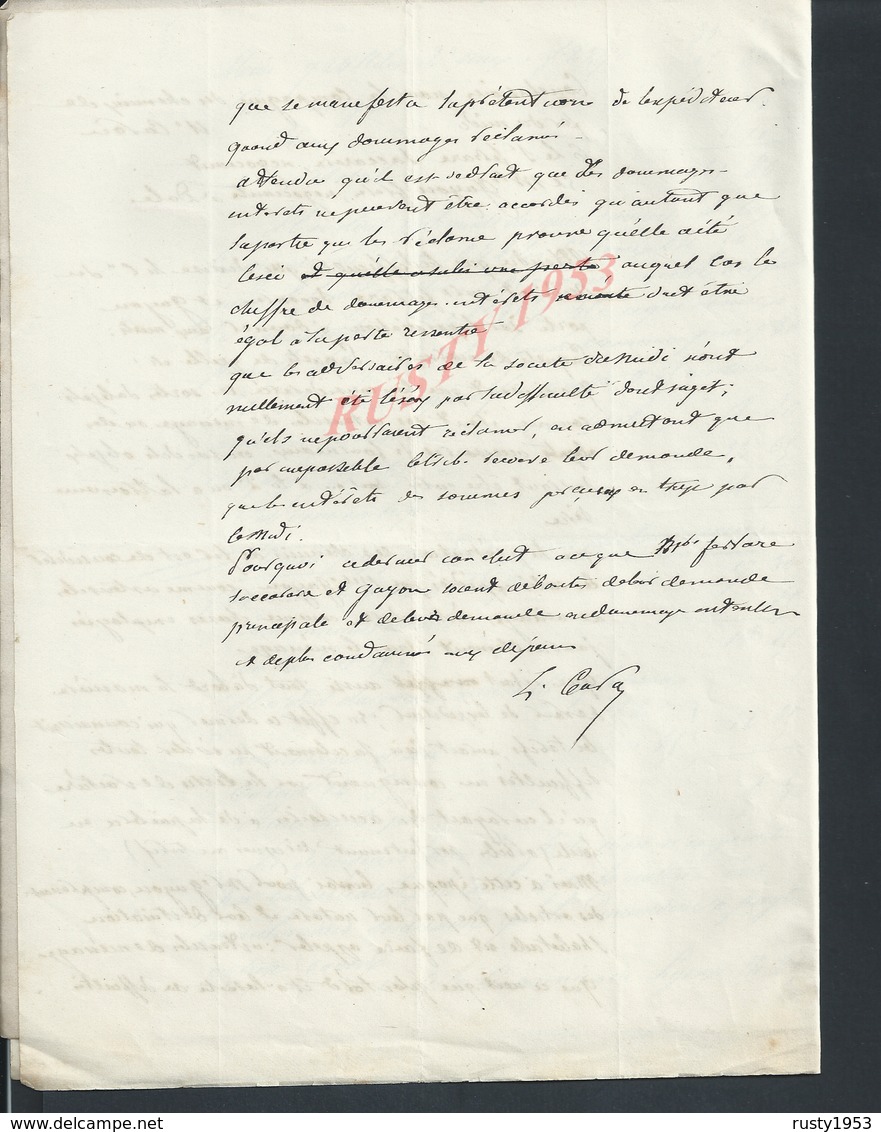 que se manifesta la prétention de l'expéditeur.
quand aux dommages réclamés
attendu qu'il est de droit que des dommages
intérêts ne peuvent être accordés qu'autant que
la partie qui les réclame prouve qu'elle a été
lésée et qu'elle a subi une perte auquel cas le
chiffre de dommages-intérêts doit être
égal à la perte ressentie
que les adversaires de la société du Midi n'ont
nullement été lésés par la difficulté dont s'agit;
qu'ils ne pourraient réclamer, en admettant que
par impossible le trib. accorde leur demande,
que les intérêts des sommes perçues en trop par
le Midi.
Pourquoi ce dernier conclut à ce que
et Gayon soient déboutés de leur demande
principale et de leur demande en dommages intérêts
et de plus condamnés aux dépens
RUSTY 1953
delcampe.net
rusty1953